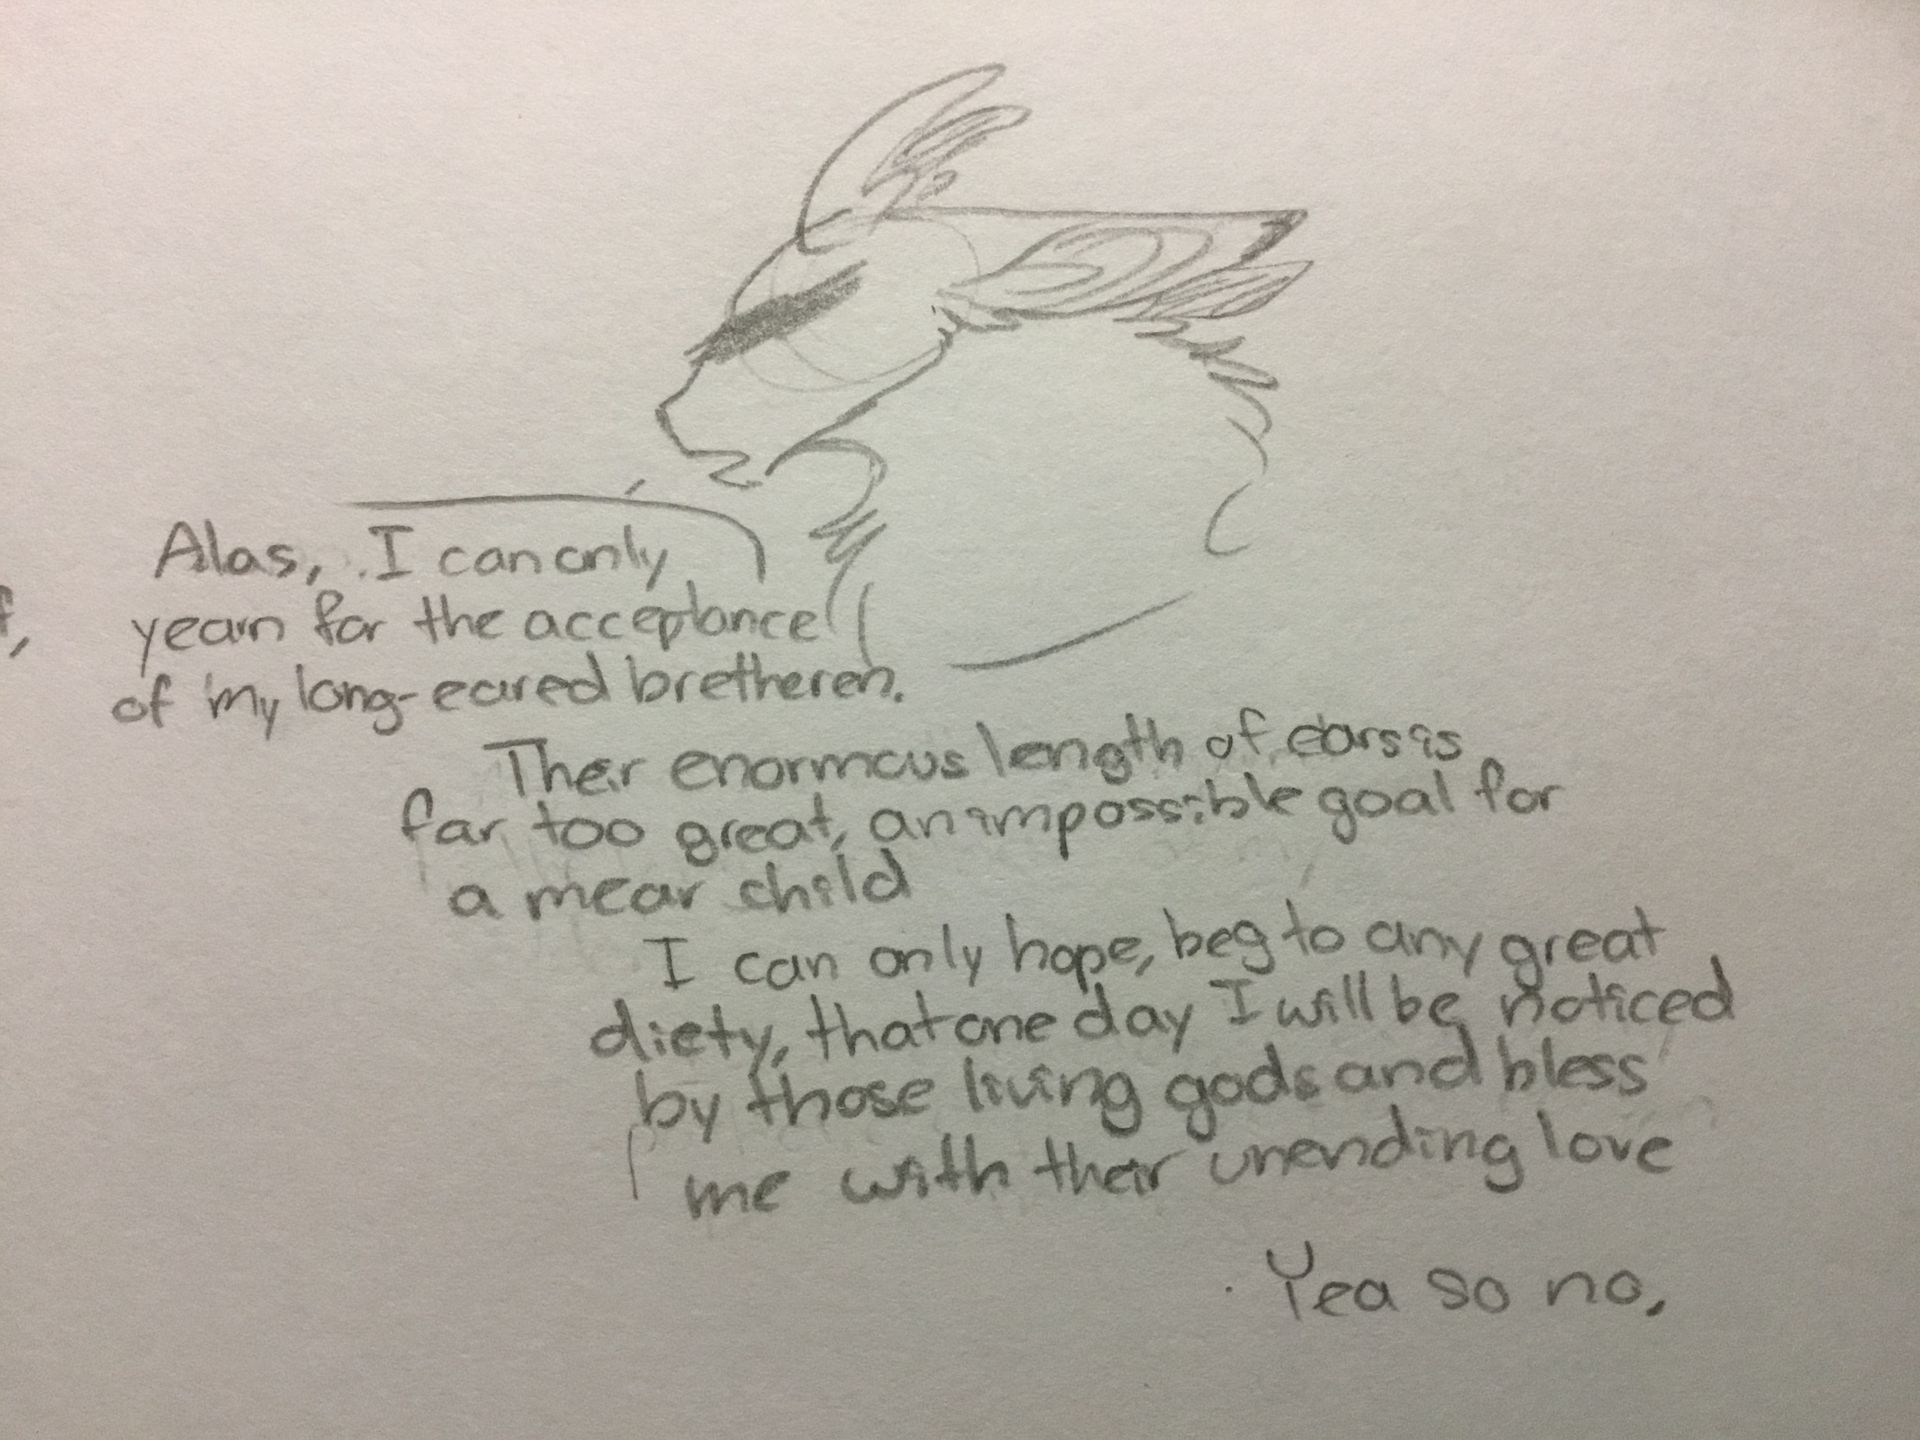 Alas, I can only
yearn for the acceptance
of my long-eared bretheren.
Their enormous length of ears is
far too great, an impossible goal for
a mear child
I can only hope, beg to any great
diety, that one day I will be noticed
by those living gods and bless
me with their unending love
Yea so no,